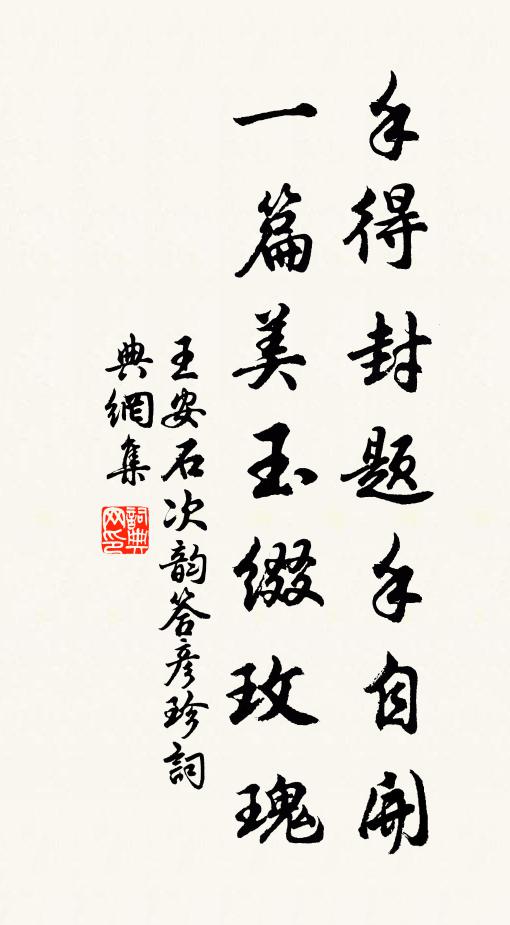 手得封題手自開
一篇美玉綴玫瑰
王安石次韵答彦珍詞
典網集
詞典网印